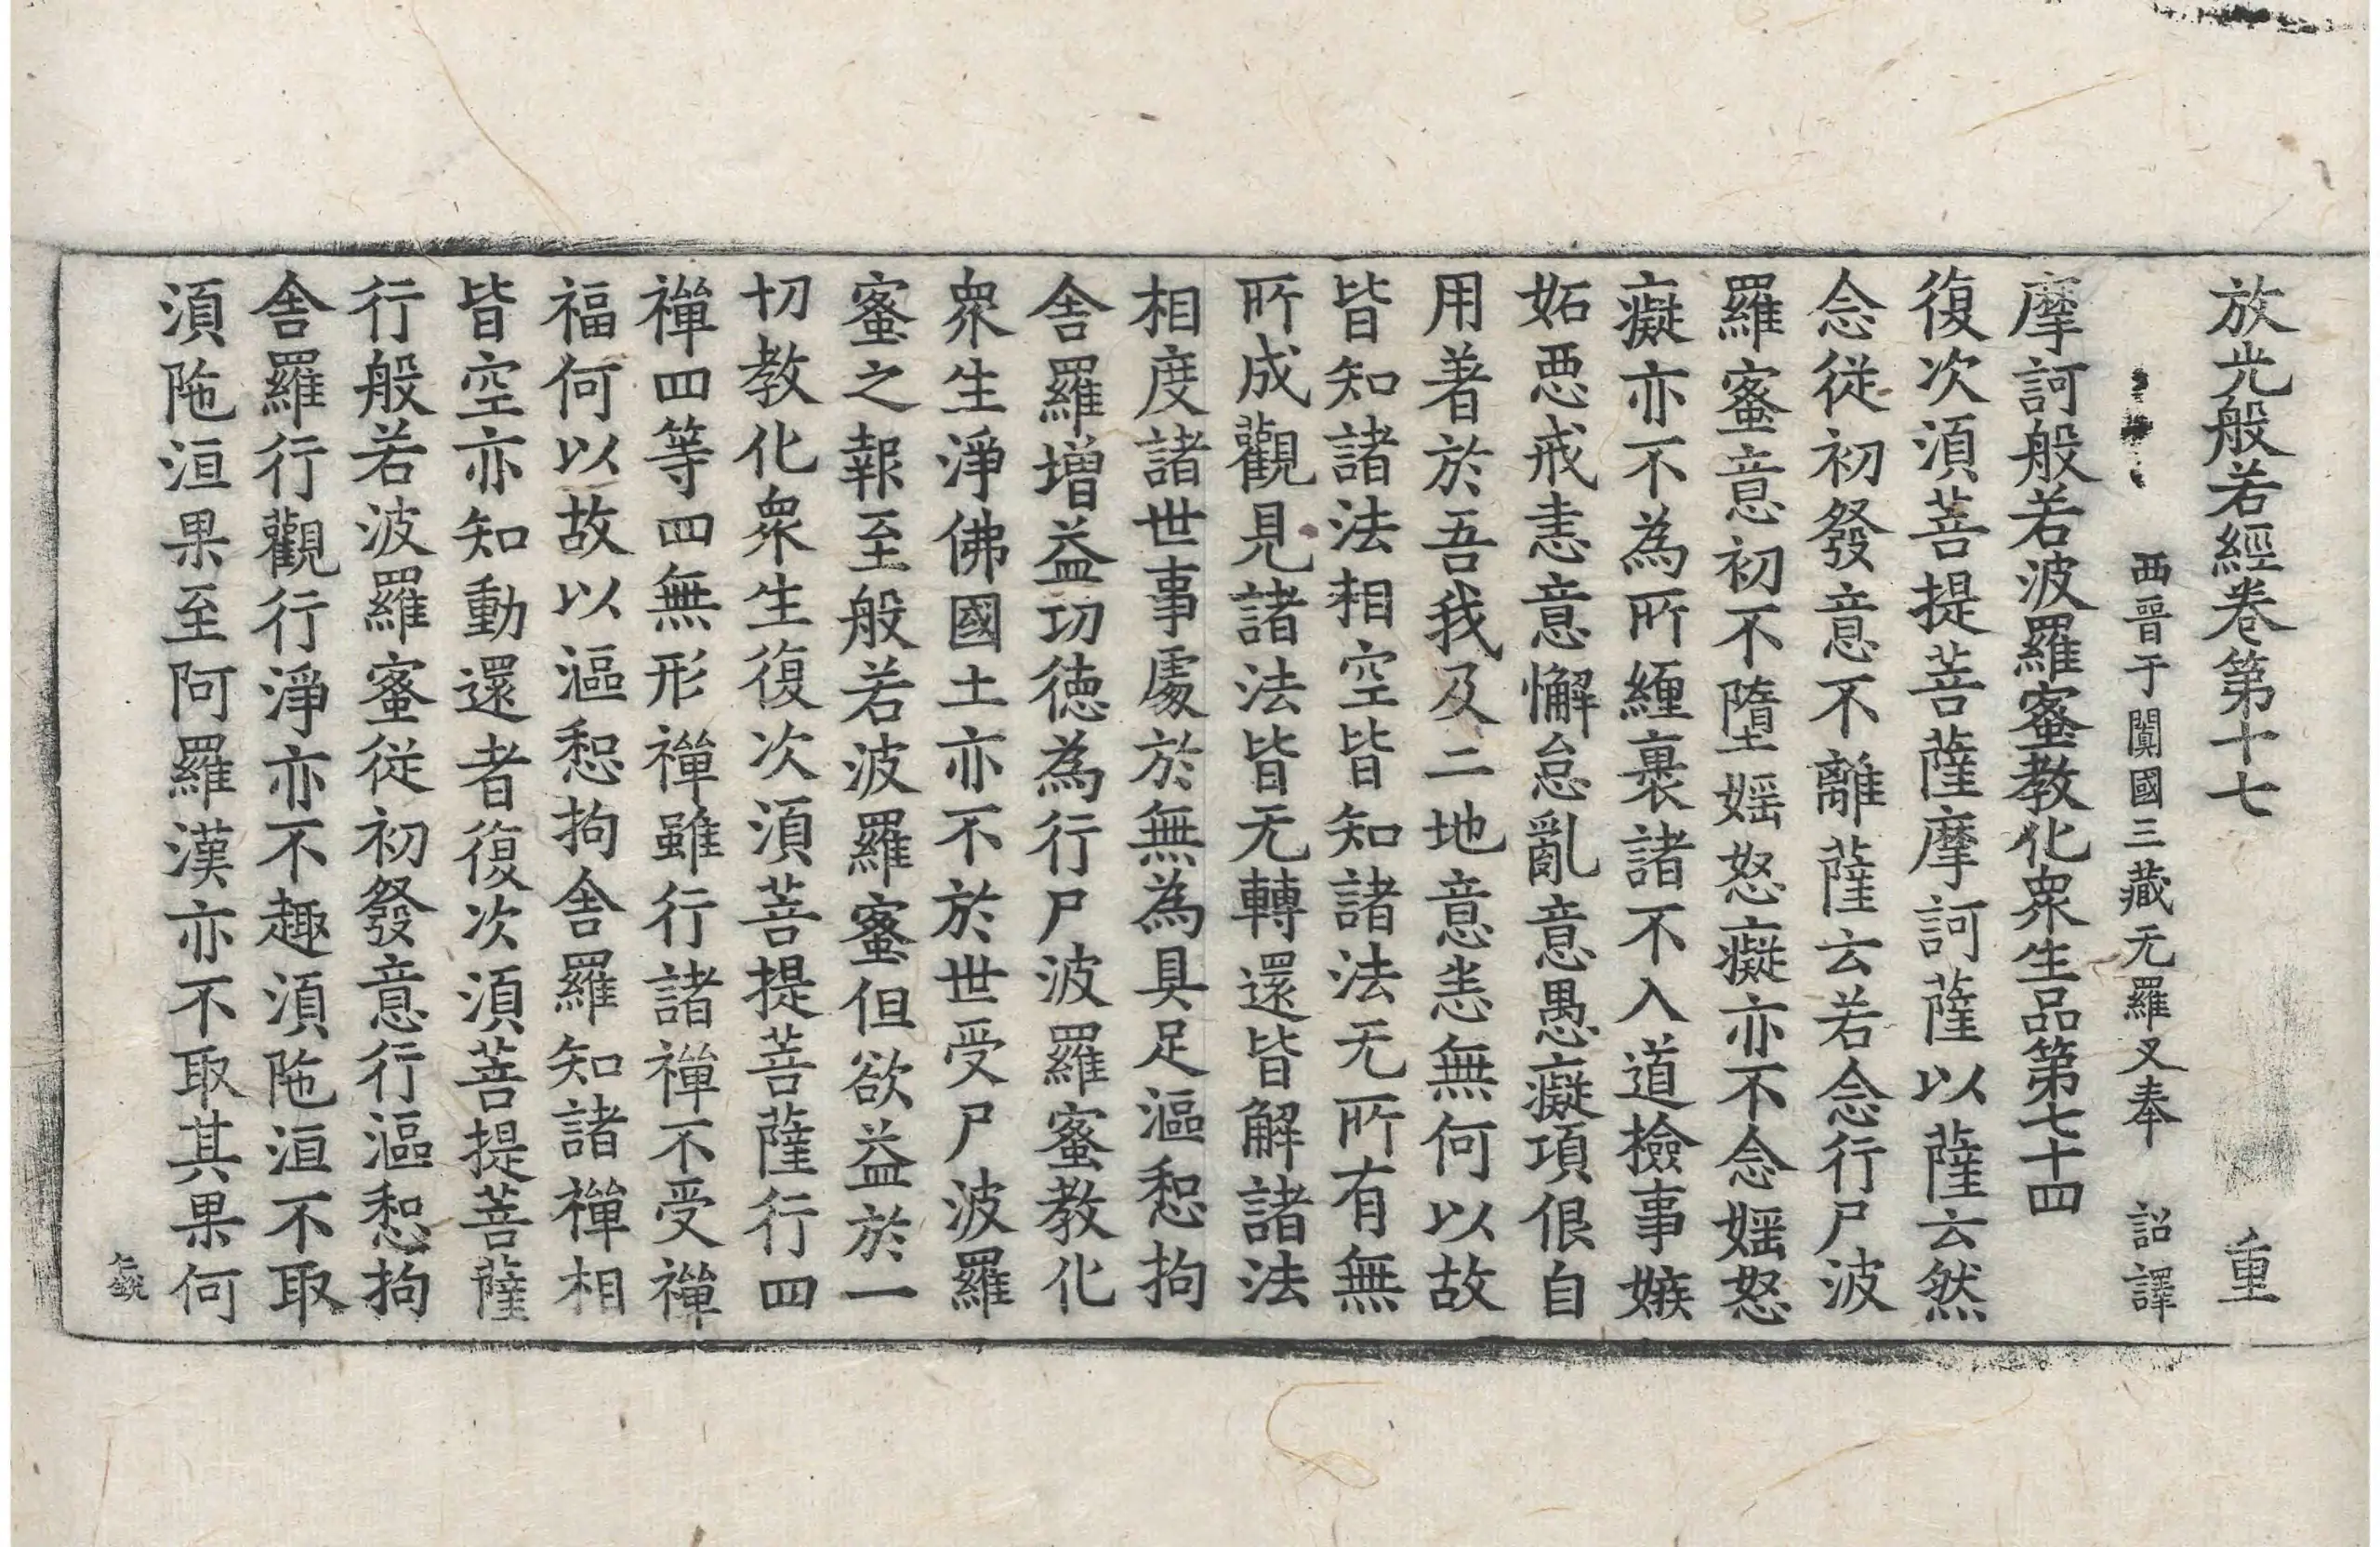 放光般若經卷第十七 重
西晉于闐國三藏无羅叉奉 詔譯
摩訶般若波羅蜜教化衆生品第七十四
復次須菩提菩薩摩訶薩以薩云然
念從初發意不離薩云若念行尸波
羅蜜意初不墮婬怒癡亦不念婬怒
癡亦不為所纏裹諸不入道撿事嫉
妬惡戒恚意懈怠亂意愚癡項佷自
用著於吾我及二地意恚無何以故
皆知諸法相空皆知諸法无所有無
所成觀見諸法皆无轉還皆解諸法
相度諸世事處於無為具足漚惒拘
舍羅增益功德為行尸波羅蜜教化
衆生淨佛國土亦不於世受尸波羅
蜜之報至般若波羅蜜但欲益於一
切教化衆生復次須菩提菩薩行四
禪四等四無形禪雖行諸禪不受禪
福何以故以漚惒拘舍羅知諸禪相
皆空亦知動還者復次須菩提菩薩
行般若波羅蜜從初發意行漚惒拘
舍羅行觀行淨亦不趣須陁洹不取
須陁洹果至阿羅漢亦不取其果何